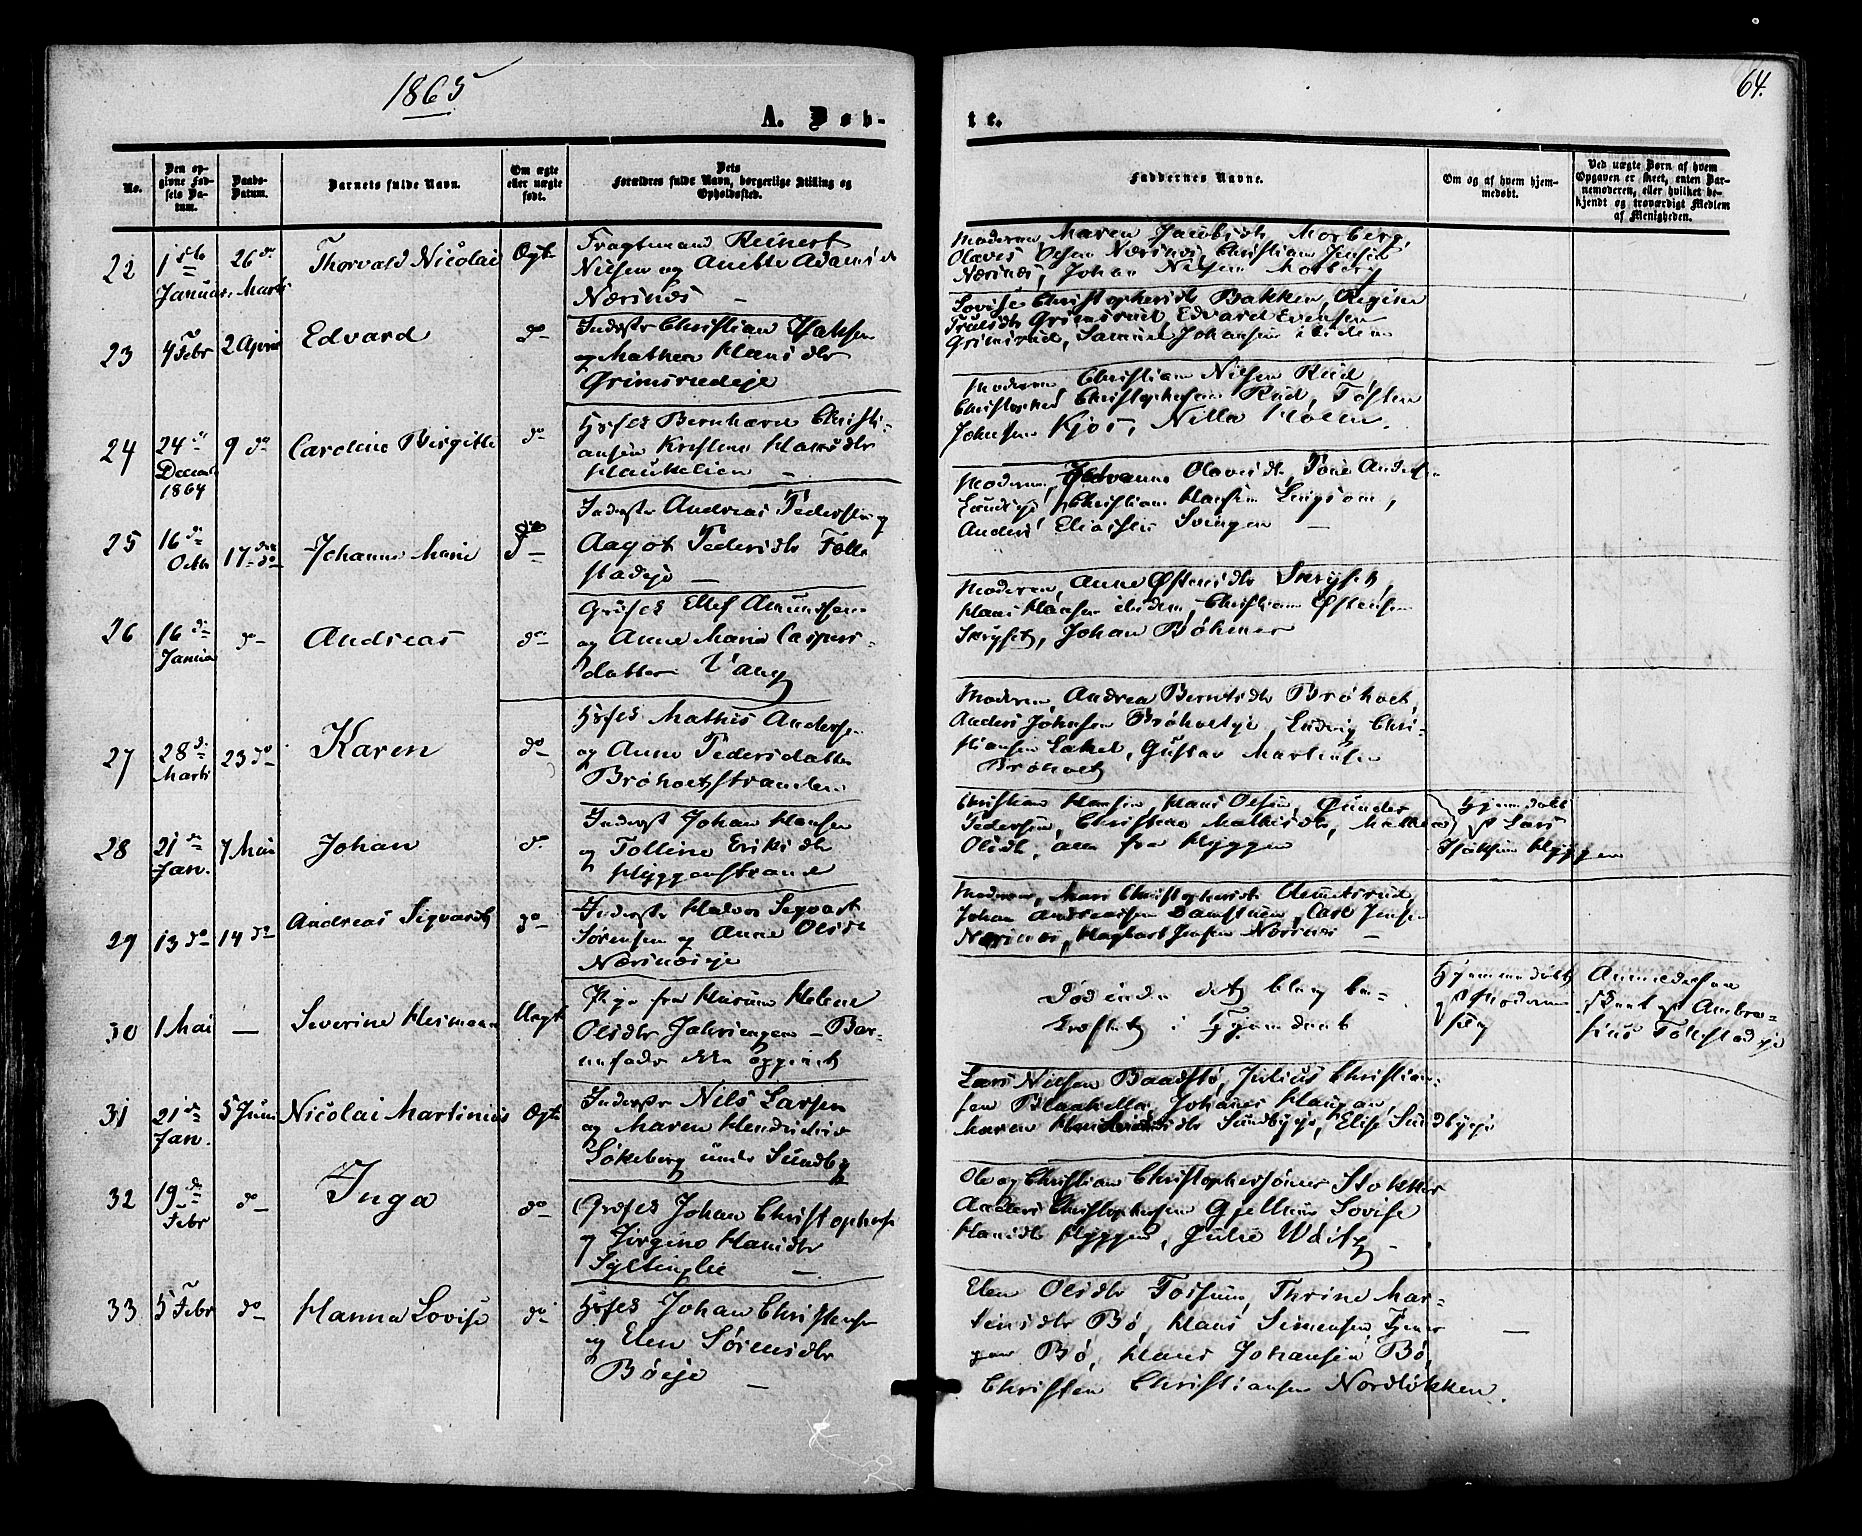 1865
64.
A. Døb-
te.
No.
Den op-
givne Fød-
sels Da-
tum.
Daabs-
Datum.
Barnets fulde Navn.
Om ægte
eller uægte
født.
Dets
Forældres fulde Navn, borgerlige Stilling og
Opholdssted.
Faddernes Navne.
Om og af hvem hjem-
medøbt.
Ved uægte Børn af hvem
Opgaven er skeet, enten Bar-
nemoderen, eller hvilket be-
kjendt og troværdigt Medlem
af Menigheden.
22
1ste
Januar
26 de
Marts
Thorvald Nicolai
Ægt
Fragtmand Reinert
Nielsen og Anette Adamsd
Nærsnæs
Moderen, Maren Jacobsdr Morberg,
Olaves Olsen Nærsnæs, Christian Jensen
Nærsnæs, Johan Nielsen Morberg
23
4 Febr
2 April
Edvard
do
Inderste Christian
og Mathea Hansdtr
Grimsrudeje
Lovise Christophersdr Bakken, Regine
Trulsdtr Grimsrud Edvard Evensen
Grimsrud, Samuel Johansen ibidem
24
24 de
Decemb
1864
9 do
Caroline Birgitte
do
Husfd Bernhard Christi-
ansen Hansdtr
Haukelien
Moderen Christian Nielsen Rud,
Christophersen Rud, Tosten
Johnsen Kjos, Nilla Holen.
25
16 de
Octbr
17 de do
Johanne Marie
do
Inderste Andreas Pedersen og
Aagot Pedersdtr Follestadeje
Moderen, Olavesdtr
Christian Hansen
Anders Eliassen Svingen
26
16 de
Januar
do
Andreas
do
Grdfd Ellef Amundsen
og Anne Marie Caspers-
datter Vang
Moderen, Anne Østensdtr Skryset,
Hans Hansen ibidem, Christian Østensen
Skryset, Johan Bøhmer
27
28 de
Marts
23 do
Karen
do
Husfd Mathis Andersen
og Anne Pedersdatter
Brøholtstranden
Moderen, Andrea Berntsdtr Brøholt,
Anders Johnsen Brøholteje, Ludvig Chri-
stiansen Gustav Martinsen
Brøholt
28
21 de
Jan.
7 Mai
Johan
do
Inderst Johan Hansen
og Tolline Eriksdtr
Hyggenstrand
Christian Hansen, Hans Olsen, Gunder
Pedersen, Christine Mathisdtr, Mathea
Olsdtr, alle fra Hyggen
Hjemmedøbt
af Lars
Hyggen
29
13 do
14 do
Andreas Sigvardt
do
Inderste Halvor Sigvart
Sørensen og Anne Olsdtr
Nærsnæseje
Moderen, Mari Christophersdr
Johan Andreassen Carl Jensen
Nærsnæs, Hagbart Jensen Nærsnæs
30
1 Mai
Severine Hermane
Uægt
Pige fra Hurum Helene
Olsdtr - Bar-
nefader ikke opgivet
Død inden det blev be-
kræftet i
Hjemmedøbt
af Moderen
selv
af Ambro-
sius Follestadeje
31
21 de
Jan.
5 Juni
Nicolai Martinius
Ægt
Inderste Nils Larsen
og Maren
Sökeberg under Sundby
Lars Nielsen Baadstø, Julius Christian-
sen Johannes
Maren Sundbyeje, Elise Sundbyeje
32
19 de
Febr
do
Inga
do
Grdfd Johan Christophersen
og Jørgine Hansdtr
Ole og Christian Christophersønner Stokker
Anders Christophersen Gjellum Lovise
Hansdtr Hyggen, Julie
33
5 Febr
do
Hanna Lovise
do
Husfd Johan Christensen
og Elen Sørensdtr
Bøeje
Elen Olsdtr Fossum, Thrine Mar-
tinsdtr Bø, Hans Simensen
Bø, Hans Johansen Bø,
Christen Christiansen Nordløkken.